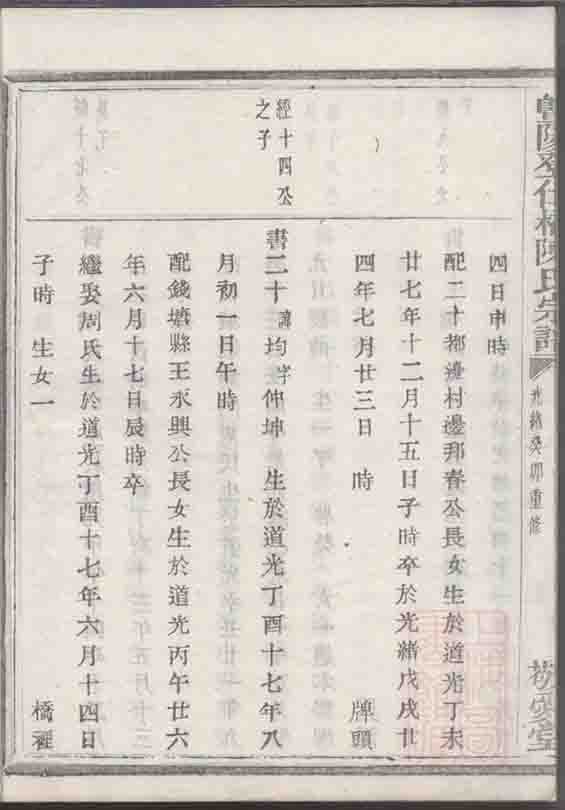 陽
仕
陳氏宗譜
光緒癸卯重修
堂
四日申時
配二十都邊村邊邦春公長女生於道光丁未
廿七年十二月十五日子時卒於光緒戊戌廿
四年七月廿三日 時 牌頭
經十四公
之子
書二十諱均字仲坤 生於道光丁酉十七年八
月初一日午時
配錢塘縣王永興公長女生於道光丙午廿六
年六月十七日辰時卒
繼娶周氏生於道光丁酉十七年六月十四日
子時 生女一 橋